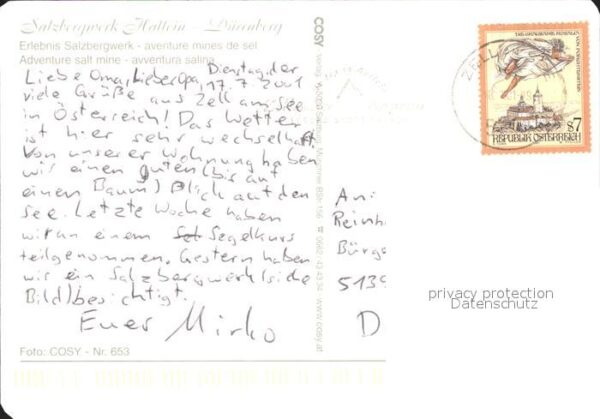 Salzbergwerk Hallein - Dürrnberg
Erlebnis Salzbergwerk - aventure mines de sel
Adventure salt mine - avventura salina
Dienstag, der
17.7.2001
Liebe Oma, Lieber Opa,
viele Grüße aus Zell am See
in Österreich! Das Wetter
ist hier sehr wechselhaft.
Von unserer Wohnung haben
wir einen guten (bis auf
einen Baum) Blick auf den
See. Letzte Woche haben
wir an einem Segelkurs
teilgenommen. Gestern haben
wir ein Salzbergwerk (siehe
Bild) besichtigt.
Euer Mirko
Foto: COSY - Nr. 653
COSY
Verlag
0662 / 43 43 34
www.cosy.at
ZELL
REPUBLIK ÖSTERREICH
S7
An:
Reinh
Bürg
5139
D
privacy protection
Datenschutz